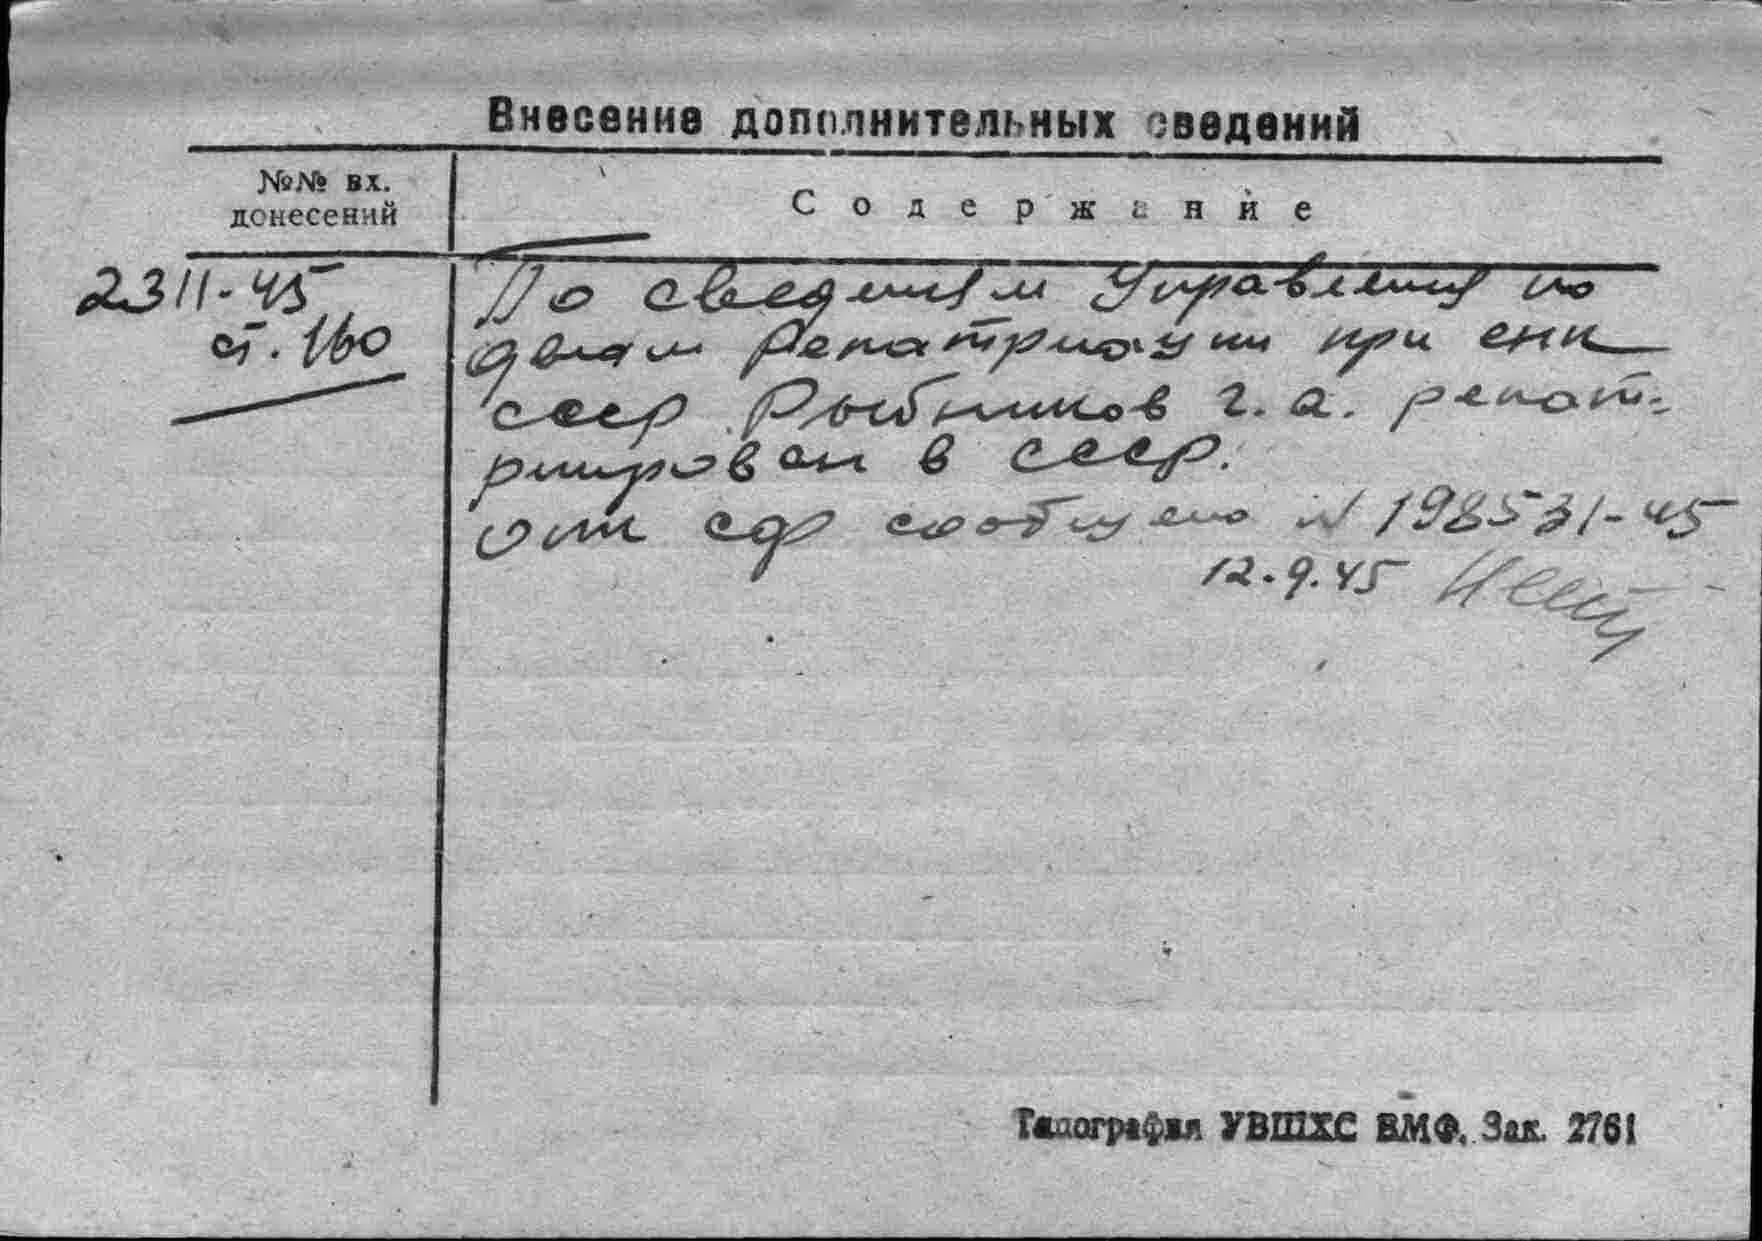 Внесение дополнительных сведений
№№ вх.
донесений
Содержание
2311-45
ст. 160
По сведениям Управления по
делам Репатриации при СНК
СССР Рыбников Г. А. репат-
риирован в СССР.
ОПП СФ сообщено N 198531-45
12.9.45
Типография УВШХС ВМФ. Зак. 2761